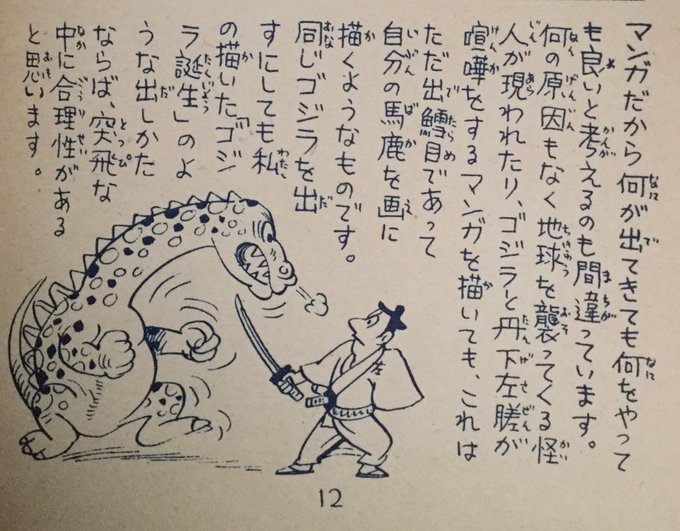 マンガだから何が出てきても何をやって
も良いと考えるのも間違っています。
何の原因もなく地球を襲ってくる怪
人が現われたり、ゴジラと丹下左膳が
喧嘩をするマンガを描いても、これは
ただ出鱈目であって
自分の馬鹿を画に
描くようなものです。
同じゴジラを出
すにしても私
の描いた「ゴジ
ラ誕生」のよ
うな出しかた
ならば、突飛な
中に合理性がある
と思います。
12